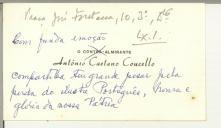 José Fontana, 10, 3º, Dto
Lx. 1.
Com funda emoção
O CONTRA-ALMIRANTE
António Caetano Coucello
compartilha tão grande pesar pela
perda do ilustre Português, honra e
glória da nossa Pátria